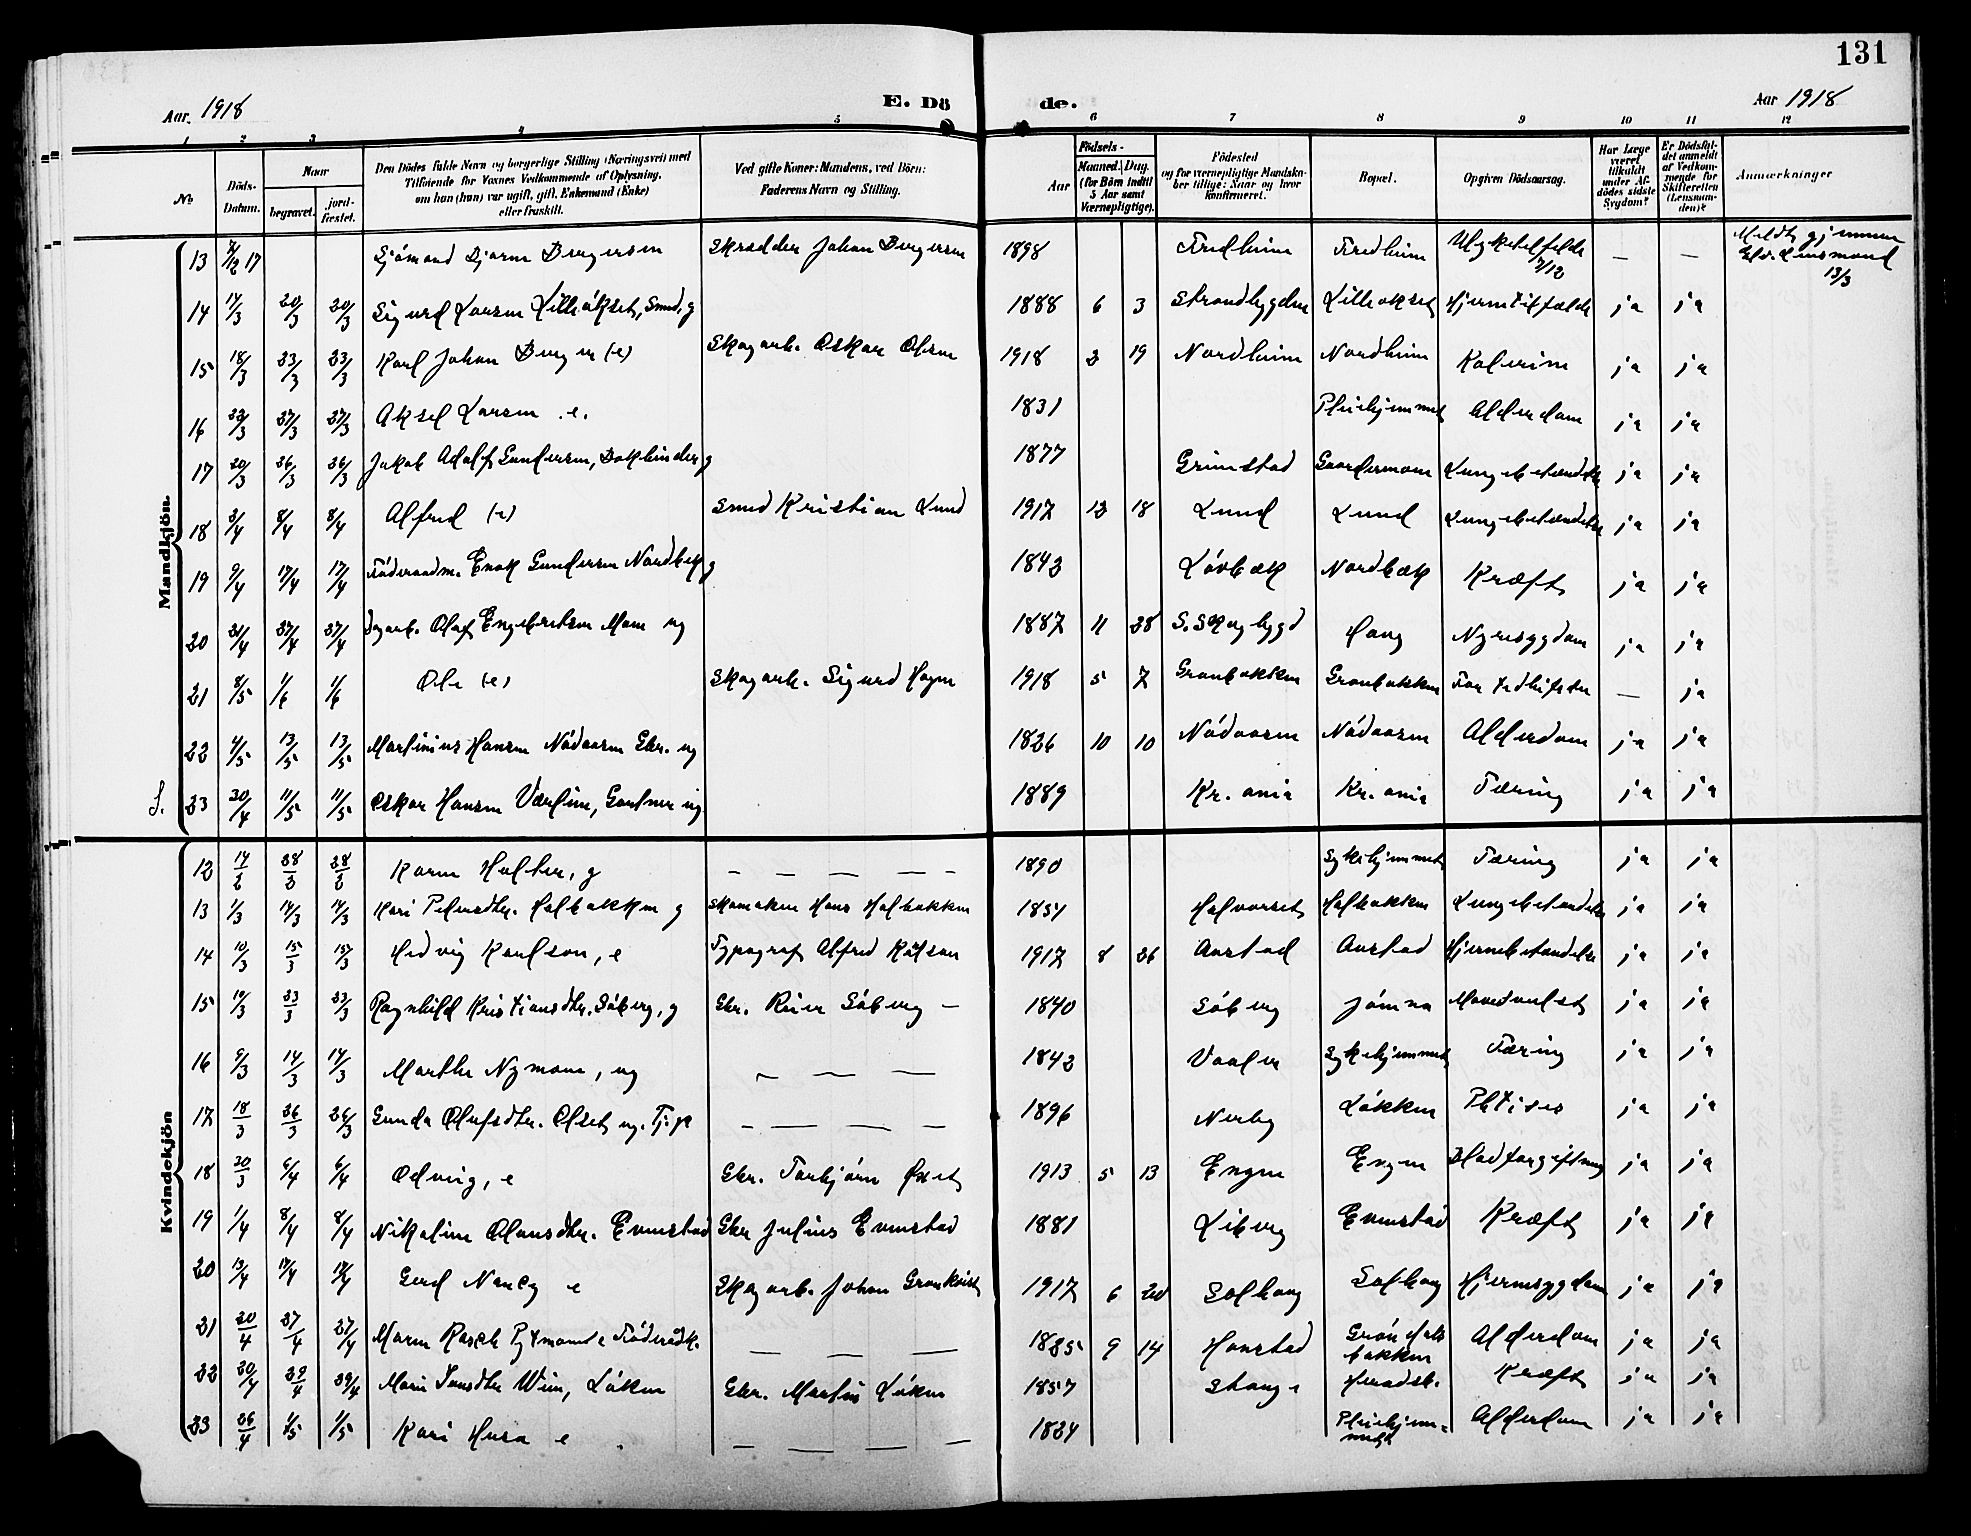 131
Aar. 1918 E. Dö de. Aar 1918
1 2 3 4 5 6 7 8 9 10 11 12
No Döds-Datum. Naar begravet. jord-fæstet. Den Dödes fulde Navn og borgerlige Stilling (Næringsvei) med Tilföiende for Voxnes Vedkommende af Oplysning, om han (hun) var ugift, gift, Enkemand (Enke) eller fraskilt. Ved gifte Koner: Mandens, ved Börn: Faderens Navn og Stilling. Födsels- Aar Maaned. Dag. (for Börn indtil 5 Aar samt Værnepligtige). Födested og for værnepligtige Mandskaber tillige: Naar og hvor konfirmeret. Bopæl. Opgiven Dödsaarsag. Har Læge været tilkaldt under Afdödes sidste Sygdom? Er Dödsfaldet anmeldt af Vedkommende for Skifteretten (Lensmanden)? Anmærkninger
Mandkjön.
13 7/12 17 Sjömand Bjarne Bergersen Skrædder Johan Bergersen 1898 Fredheim Fredheim Ulykkestilfelde 7/12 — — Meldt gjennem Elv. Lensmand 13/3
14 17/3 20/3 20/3 Sigurd Larsen Lilleökset, Smed, g 1888 6 3 Strandbygden Lilleökset Hjertetilfælde ja ja
15 18/3 23/3 23/3 Karl Johan Berger (e) Skogarb. Oskar Olsen 1918 2 19 Nordheim Nordheim Kolerine ja ja
16 22/3 27/3 27/3 Aksel Larsen .e. 1831 Pleiehjemmet Alderdom ja ja
17 20/3 26/3 26/3 Jakob Adolf Gundersen, Bokbinder g 1877 Grimstad Gaardermoen Lungebetændelse ja ja
18 3/4 8/4 8/4 Alfred (e) Smed Kristian Lund 1917 12 18 Lund Lund Lungebetændelse ja ja
19 9/4 17/4 17/4 Föderaadm. Enok Gundersen Nordbæk g 1843 Lövbæk Nordbæk Kræft ja ja
20 21/4 27/4 27/4 Dagarb. Olaf Engebretsen Moen ug 1887 11 28 S. Skogbygd Haug Nyresygdom ja ja
21 8/5 1/6 1/6 Ole (e) Skogarb. Sigurd Hagen 1918 5 7 Granbakken Granbakken For tidligfødt — ja
22 4/5 13/5 13/5 Martinius Hansen Nödaasen Gbr. ug 1826 10 10 Nödaasen Nödaasen Alderdom ja ja
S. 23 30/4 11/5 11/5 Oskar Hansen Værlien, Gartner ug 1889 Kr.ania Kr.ania Tæring ja ja
Kvindekjön
12 17/2 28/2 28/2 Karen Holter, g — — — — — 1890 Sykehjemmet Tæring ja ja
13 1/3 14/3 14/3 Kari Pedersdtr. Holbakken g Skomaker Hans Holbakken 1851 Halvorset Holbakken Lungebetændelse ja ja
14 10/3 15/3 15/3 Hedvig Karlson, e Typograf Alfred Karlson 1917 8 26 Aarstad Aarstad Hjernebetændelse ja ja
15 10/3 23/3 23/3 Ragnhild Kristiansdtr. Söberg, g Gbr. Reier Söberg — 1840 Söberg Jömna Mavesvulst ja ja
16 9/3 14/3 14/3 Marthe Nymoen, ug — — — 1842 Vaaler Sykehjemmet Tæring ja ja
17 18/3 26/3 26/3 Gunda Olufsdtr. Olset ug. Tj.p — — — — 1896 Nerby Løkken Phtisis ja ja
18 30/3 6/4 6/4 Odveig, e Gbr. Torbjörn Øxset 1913 5 13 Engen Engen Blodforgiftning ja ja
19 1/4 8/4 8/4 Nikoline Olausdtr. Evenstad Gbr Julius Evenstad 1881 Liberg Evenstad Kræft ja ja
20 13/4 17/4 17/4 Gerd Nancy e Skogarb. Johan Grankvist 1917 6 20 Solhaug Solhaug Hjernesygdom ja ja
21 20/4 27/4 27/4 Maren Rasch Pytmoen e Föderådk. — — — 1825 9 14 Hanstad Grönholtbakken Alderdom ja ja
22 20/4 29/4 29/4 Marie Iversdtr Wien, Löken Gbr. Martin Löken 1857 Stange Heradsb. Kræft ja ja
23 26/4 1/5 1/5 Kari Husa e — — — — 1824 Pleiehjemmet Alderdom ja ja